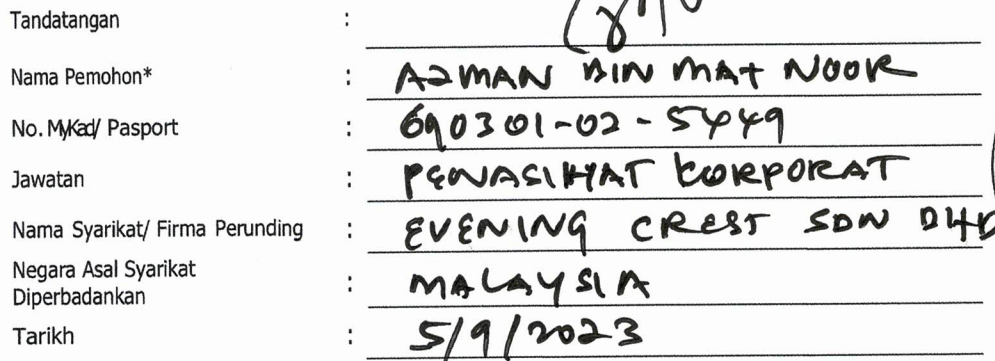 Tandatangan :
Nama Pemohon* : AZMAN BIN MAT NOOR
No. MyKad/ Pasport : 690301-02-5449
Jawatan : PENASIHAT KORPORAT
Nama Syarikat/ Firma Perunding : EVENING CREST SDN BHD
Negara Asal Syarikat
Diperbadankan : MALAYSIA
Tarikh : 5/9/2023